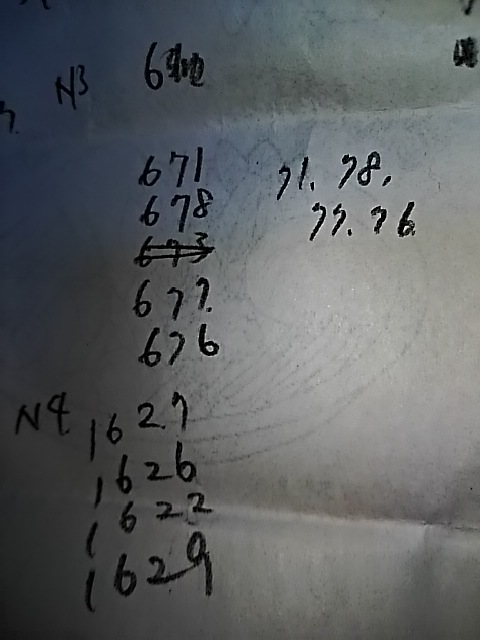 N3 6
671 71. 78.
678
77. 76
673
677.
676
N4 1627
1626
1622
1629